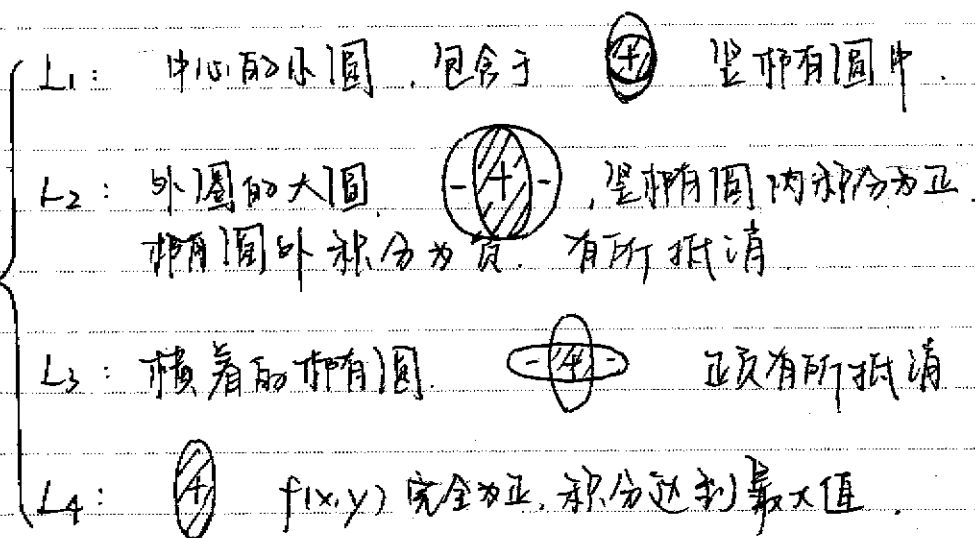 L1: 中心的小圆，包含于 + 竖椭圆中.
L2: 外圈的大圆 - + - ，竖椭圆内积分为正.
椭圆外积分为负. 有所抵消.
L3: 横着的椭圆. - + - 正负有所抵消
L4: + f(x,y) 完全为正, 积分达到最大值.